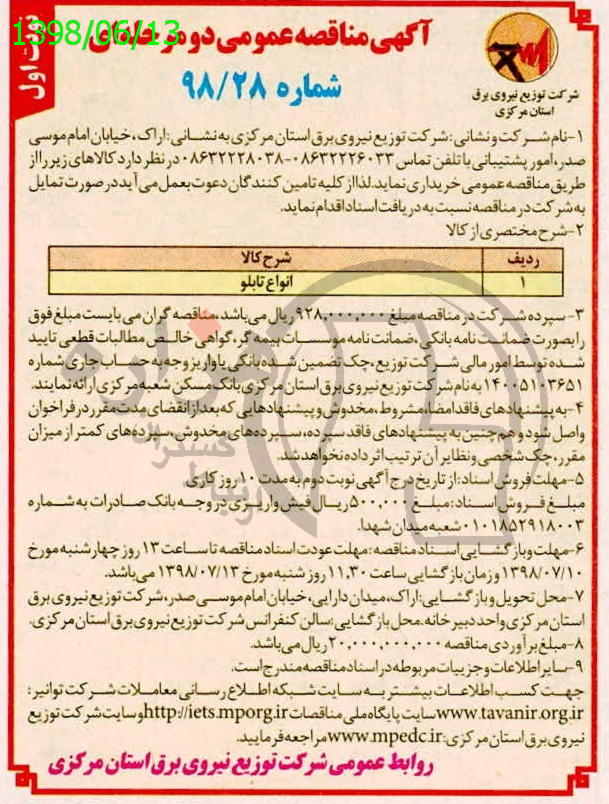 1398/06/13
نوبت اول
آگهی مناقصه عمومی دو مرحله‌ای
شماره ۹۸/۲۸
شرکت توزیع نیروی برق
استان مرکزی
۱-نام شرکت ونشانی: شرکت توزیع نیروی برق استان مرکزی به نشانی: اراک، خیابان امام موسی
صدر، امور پشتیبانی با تلفن تماس ۰۸۶۳۲۲۲۶۰۳۳-۰۸۶۳۲۲۲۸۰۳۸ در نظر دارد کالاهای زیر را از
طریق مناقصه عمومی خریداری نماید. لذا از کلیه تامین کنندگان دعوت بعمل می آید در صورت تمایل
به شرکت در مناقصه نسبت به دریافت اسناد اقدام نماید.
۲-شرح مختصری از کالا
ردیف شرح کالا
۱ انواع تابلو
۳- سپرده شرکت در مناقصه مبلغ ۹۲۸,۰۰۰,۰۰۰ ریال می‌باشد، مناقصه گران می بایست مبلغ فوق
را بصورت ضمانت نامه بانکی، ضمانت نامه موسسات بیمه گر، گواهی خالص مطالبات قطعی تایید
شده توسط امور مالی شرکت توزیع، چک تضمین شده بانکی یا واریز وجه به حساب جاری شماره
۱۴۰۰۵۱۰۳۶۵۱ به نام شرکت توزیع نیروی برق استان مرکزی بانک مسکن شعبه مرکزی ارائه نمایند.
۴-به پیشنهادهای فاقد امضا، مشروط، مخدوش و پیشنهادهایی که بعد از انقضای مدت مقرر در فراخوان
واصل شود و هم چنین به پیشنهادهای فاقد سپرده، سپرده‌های مخدوش، سپرده‌های کمتر از میزان
مقرر، چک شخصی و نظایر آن ترتیب اثر داده نخواهد شد.
۵-مهلت فروش اسناد: از تاریخ درج آگهی نوبت دوم به مدت ۱۰ روز کاری
مبلغ فروش اسناد: مبلغ ۵۰۰,۰۰۰ ریال فیش واریزی در وجه بانک صادرات به شماره
۰۱۰۱۸۵۲۹۱۸۰۰۳ شعبه میدان شهدا.
۶-مهلت و بازگشایی اسناد مناقصه: مهلت عودت اسناد مناقصه تا ساعت ۱۳ روز چهارشنبه مورخ
۱۳۹۸/۰۷/۱۰ و زمان بازگشایی ساعت ۱۱,۳۰ روز شنبه مورخ ۱۳۹۸/۰۷/۱۳ می‌باشد.
۷-محل تحویل و بازگشایی: اراک، میدان دارایی، خیابان امام موسی صدر، شرکت توزیع نیروی برق
استان مرکزی واحد دبیرخانه. محل بازگشایی: سالن کنفرانس شرکت توزیع نیروی برق استان مرکزی.
۸-مبلغ برآوردی مناقصه ۲۰,۰۰۰,۰۰۰,۰۰۰ ریال می‌باشد.
۹-سایر اطلاعات و جزییات مربوطه در اسناد مناقصه مندرج است.
جهت کسب اطلاعات بیشتر به سایت شبکه اطلاع رسانی معاملات شرکت توانیر:
www.tavanir.org.ir سایت پایگاه ملی مناقصات http://iets.mporg.ir وسایت شرکت توزیع
نیروی برق استان مرکزی: www.mpedc.ir مراجعه فرمایید.
روابط عمومی شرکت توزیع نیروی برق استان مرکزی